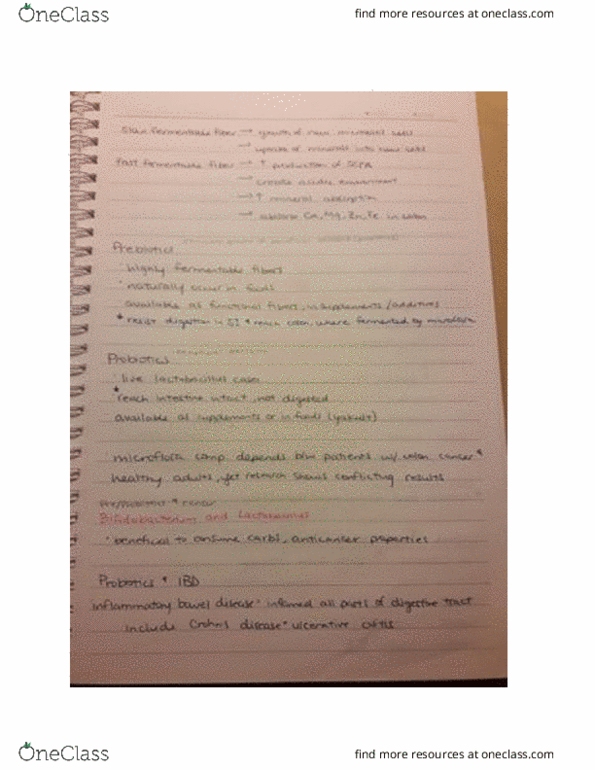 OneClass
find more resources at oneclass.com
Slow fermentable fiber → growth of new microbial cells
→ uptake of minerals into new cells
Fast fermentable fiber → ↑ production of SCFA
→ create acidic environment
→ ↑ mineral absorption
→ Ca, Mg, Zn, Fe in colon
Prebiotics
· highly fermentable fibers
· naturally occur in foods
available as functional fibers, in supplements/additives
* resist digestion in GI + reach colon, where fermented by microflora
Probiotics
· live lactobacillus
* reach intestine intact, not digested
available as supplements or in foods (yakult)
microflora comp depends btw patients w/ colon cancer +
healthy adults, yet research shows conflicting results
Bifidobacterium and Lactobacillus
· beneficial to consume carbs, anticancer properties
Probiotics + IBD
inflammatory bowel disease · inflamed all parts of digestive tract
include Crohns disease + ulcerative colitis
OneClass
find more resources at oneclass.com